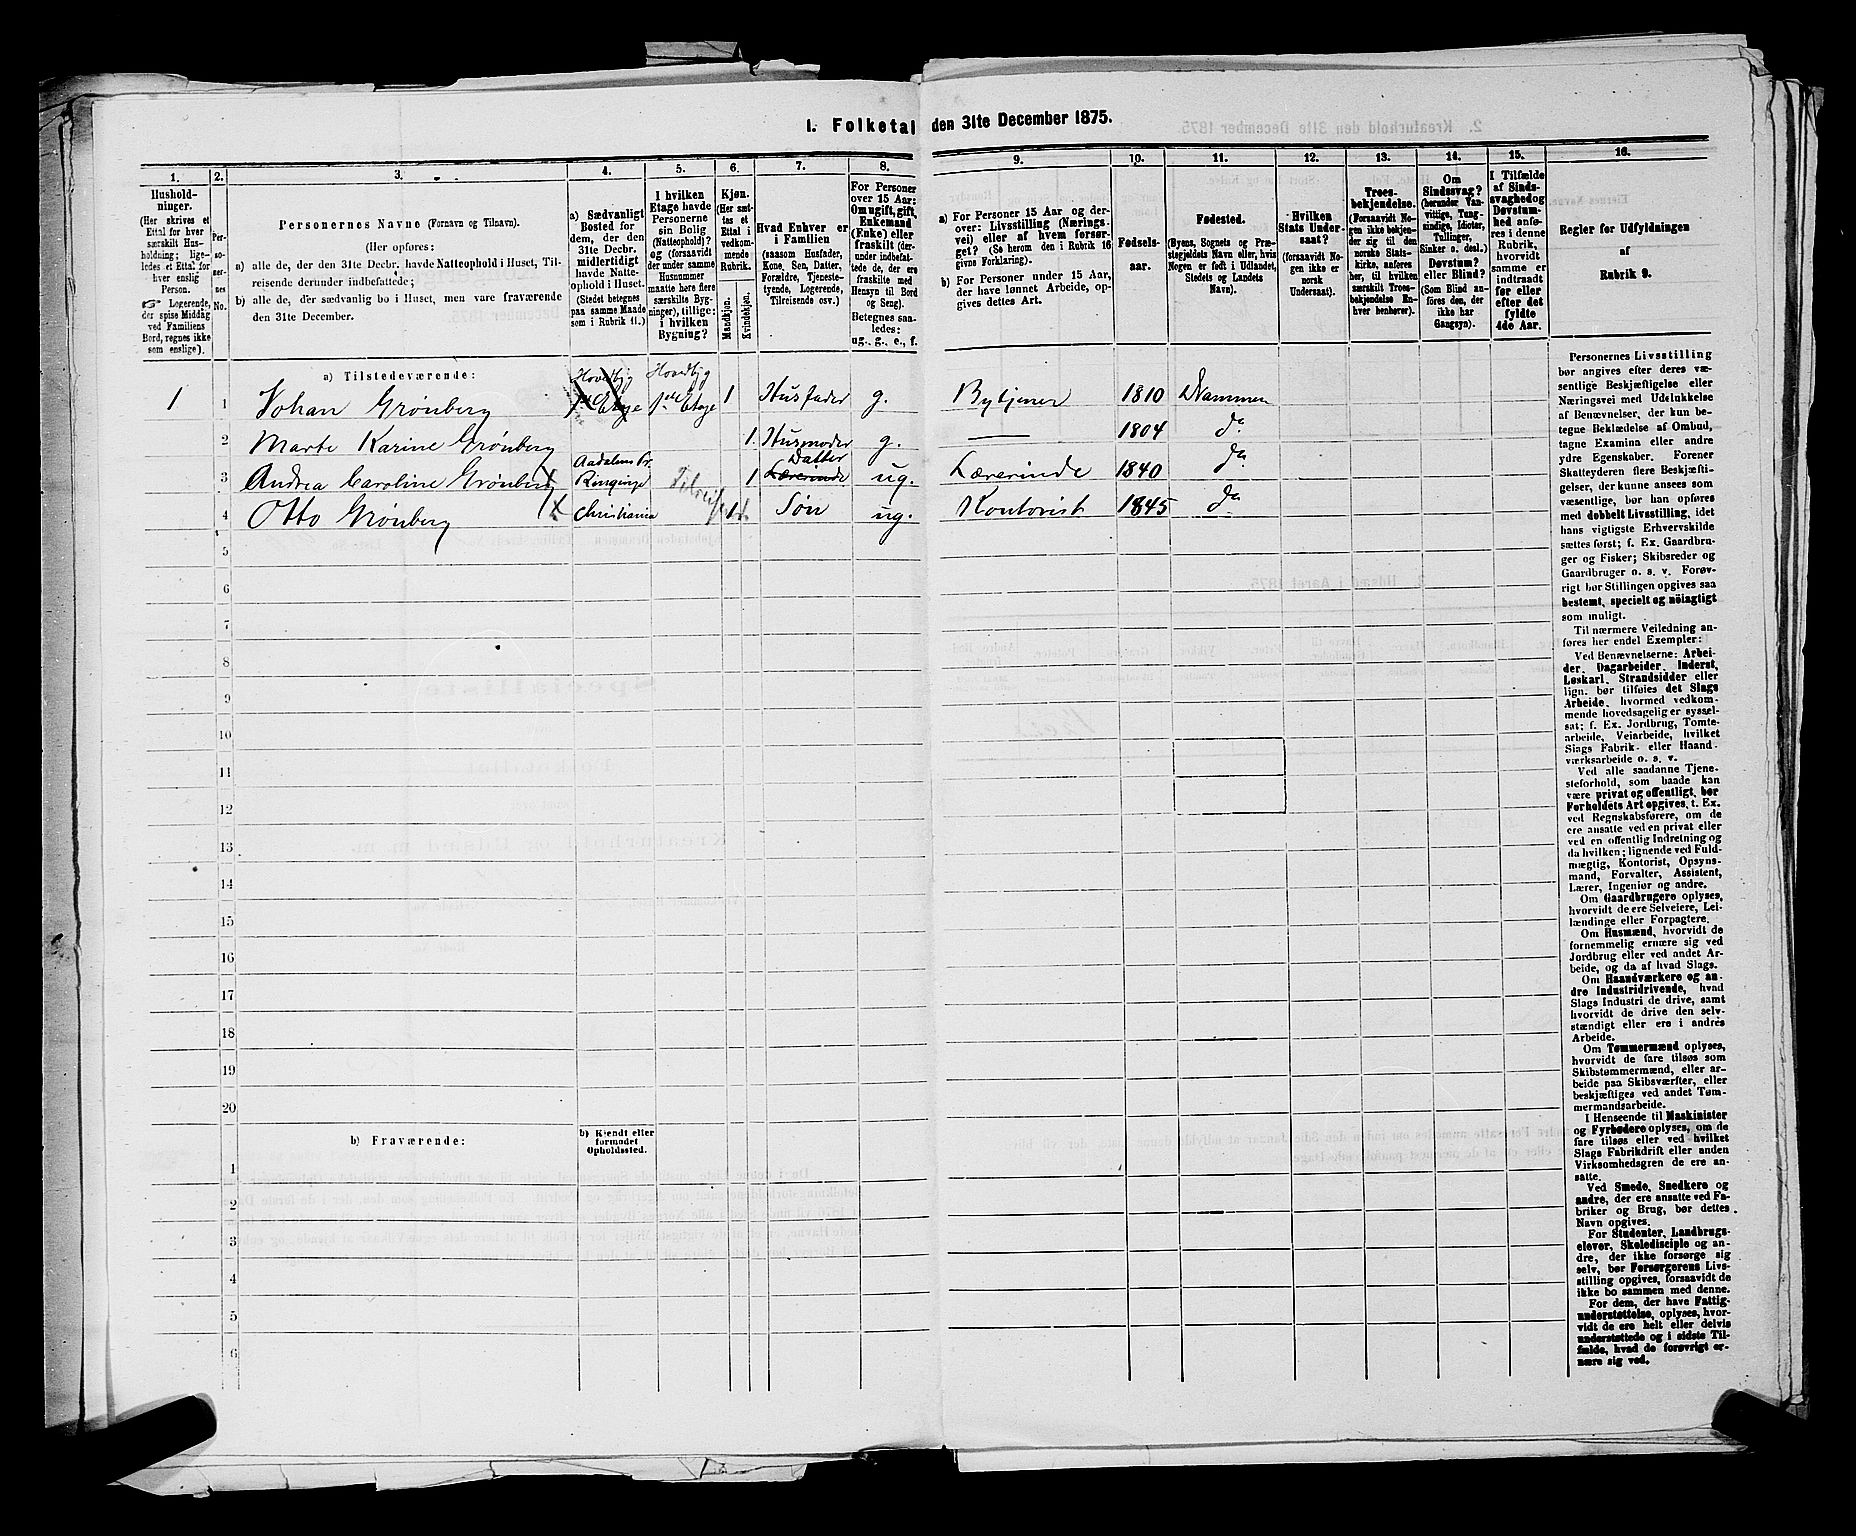 1. Folketal den 31te December 1875.
1.
Hushold-
ninger.
(Her skrives et
Ettal for hver
særskilt Hus-
holdning; lige-
ledes et Ettal for
hver enslig
Person.
☞ Logerende,
der spise Middag
ved Familiens
Bord, regnes ikke
som enslige).
2.
Per-
so-
ner-
nes
No.
3.
Personernes Navne (Fornavn og Tilnavn).
(Her opføres:
a) alle de, der den 31te Decbr. havde Natteophold i Huset, Til-
reisende derunder indbefattede;
b) alle de, der sædvanlig bo i Huset, men vare fraværende
den 31te December.
4.
a) Sædvanligt
Bosted for
dem, der den
31te Decbr.
midlertidigt
havde Natte-
ophold i Huset.
(Stedet betegnes
paa samme Maade
som i Rubrik 11.)
5.
I hvilken
Etage havde
Personerne
sin Bolig
(Natteophold)?
og (forsaavidt
der under samme
Husnummer
maatte høre flere
særskilte Byg-
ninger), tillige:
i hvilken
Bygning?
6.
Kjøn.
(Her sæt-
tes et
Ettal i
vedkom-
mende
Rubrik.
Mandkjøn.
Kvindekjøn.
7.
Hvad Enhver er
i Familien
(saasom Husfader,
Kone, Søn, Datter,
Forældre, Tjeneste-
tyende, Logerende,
Tilreisende osv.)
8.
For Personer
over 15 Aar:
Om ugift, gift,
Enkemand
(Enke) eller
fraskilt (der-
under indbefat-
tede de, der ere
fraskilte med
Hensyn til Bord
og Seng).
Betegnes saa-
ledes:
ug., g., e., f.
9.
a) For Personer 15 Aar og der-
over: Livsstilling (Nærings-
vei) eller af hvem forsør-
get? (Se herom den i Rubrik 16
givne Forklaring).
b) For Personer under 15 Aar,
der have lønnet Arbeide, op-
gives dettes Art.
10.
Fødsels-
aar.
11.
Fødested.
(Byens, Sognets og Præ-
stegjeldets Navn eller, hvis
Nogen er født i Udlandet,
Stedets og Landets
Navn).
12.
Hvilken
Stats Under-
saat?
(forsaavidt No-
gen ikke er
norsk
Undersaat).
13.
Troes-
bekjendelse.
(Forsaavidt No-
gen ikke bekjen-
der sig til den
norske Stats-
kirke, anføres
her, til hvilken
særskilt Troes-
bekjendelse En-
hver henhører).
14.
Om
Sindssvag?
(herunder Van-
vittige, Tung-
sindige, Idioter,
Tullinger,
Sinker o. desl.)
Døvstum?
eller Blind?
(Som Blind an-
føres den, der
ikke har
Gangsyn).
15.
I Tilfælde
af Sinds-
svaghed og
Døvstum-
hed anfø-
res i denne
Rubrik,
hvorvidt
samme er
indtraadt
før eller
efter det
fyldte
4de Aar.
16.
Regler for Udfyldningen
af
Rubrik 9.
a) Tilstedeværende:
Hovedbyg Hovedbyg
1 1 Johan Grønberg 1ste Etage 1ste Etage 1 Husfader g. Bytjener 1810 Drammen
2 Marte Karine Grønberg 1. Husmoder g. — 1804 do
Aadalens Pr. Datter
3 Andrea Caroline Grønberg X Ringerige 1 Lærerinde ug. Lærerinde 1840 do
4 Otto Grønberg X Christiania 1 Søn ug. Kontorist 1845 do
5
6
7
8
9
10
11
12
13
14
15
16
17
18
19
20
b) Fraværende:
b) Kjendt eller
formodet
Opholdssted.
1
2
3
4
5
6
Personernes Livsstilling
bør angives efter deres væ-
sentlige Beskjæftigelse eller
Næringsvei med Udelukkelse
af Benævnelser, der kun be-
tegne Beklædelse af Ombud,
tagne Examina eller andre
ydre Egenskaber. Forener
Skatteyderen flere Beskjæfti-
gelser, der kunne ansees som
væsentlige, bør han opføres
med dobbelt Livsstilling, idet
hans vigtigste Erhvervskilde
sættes først; f. Ex. Gaardbru-
ger og Fisker; Skibsreder og
Gaardbruger o. s. v. Forøv-
rigt bør Stillingen opgives saa
bestemt, specielt og nöiagtigt
som muligt.
Til nærmere Veiledning an-
føres her endel Exempler:
Ved Benævnelserne: Arbei-
der, Dagarbeider, Inderst,
Løskarl, Strandsidder eller
lign. bør tilføies det Slags
Arbeide, hvormed vedkom-
mende hovedsagelig er syssel-
sat; f. Ex. Jordbrug, Tomte-
arbeide, Veiarbeide, hvilket
Slags Fabrik- eller Haand-
værksarbeide o. s. v.
Ved alle saadanne Tjene-
steforhold, som baade kan
være privat og offentligt, bør
Forholdets Art opgives, t. Ex.
ved Regnskabsførere, om de
ere ansatte ved en privat eller
ved en offentlig Indretning og
da hvilken; lignende ved Fuld-
mægtig, Kontorist, Opsyns-
mand, Forvalter, Assistent,
Lærer, Ingeniør og andre.
Om Gaardbrugere oplyses,
hvorvidt de ere Selveiere, Lei-
lændinge eller Forpagtere.
Om Husmænd, hvorvidt de
fornemmelig ernære sig ved
Jordbrug eller ved andet Ar-
beide, og da af hvad Slags.
Om Haandværkere og an-
dre Industridrivende, hvad
Slags Industri de drive, samt
hvorvidt de drive den selv-
stændigt eller ere i andres
Arbeide.
Om Tømmermænd oplyses,
hvorvidt de fare tilsøs som
Skibstømmermænd, eller ar-
beide paa Skibsværfter, eller
beskjæftiges ved andet Tøm-
mermandsarbeide.
I Henseende til Maskinister
og Fyrbødere oplyses, om de
fare tilsøs eller ved hvilket
Slags Fabrikdrift eller anden
Virksomhedsgren de ere an-
satte.
Ved Smede, Snedkere og
andre, der ere ansatte ved Fa-
briker og Brug, bør dettes
Navn opgives.
For Studenter, Landbrugs-
elever, Skoledisciple og an-
dre, der ikke forsørge sig
selv, bør Forsørgerens Livs-
stilling opgives, forsaavidt de
ikke bo sammen med denne.
For dem, der have Fattig-
understøttelse, oplyses, hvor-
vidt de ere helt eller delvis
understøttede og i sidste Til-
fælde, hvad de forøvrigt er-
nære sig ved.